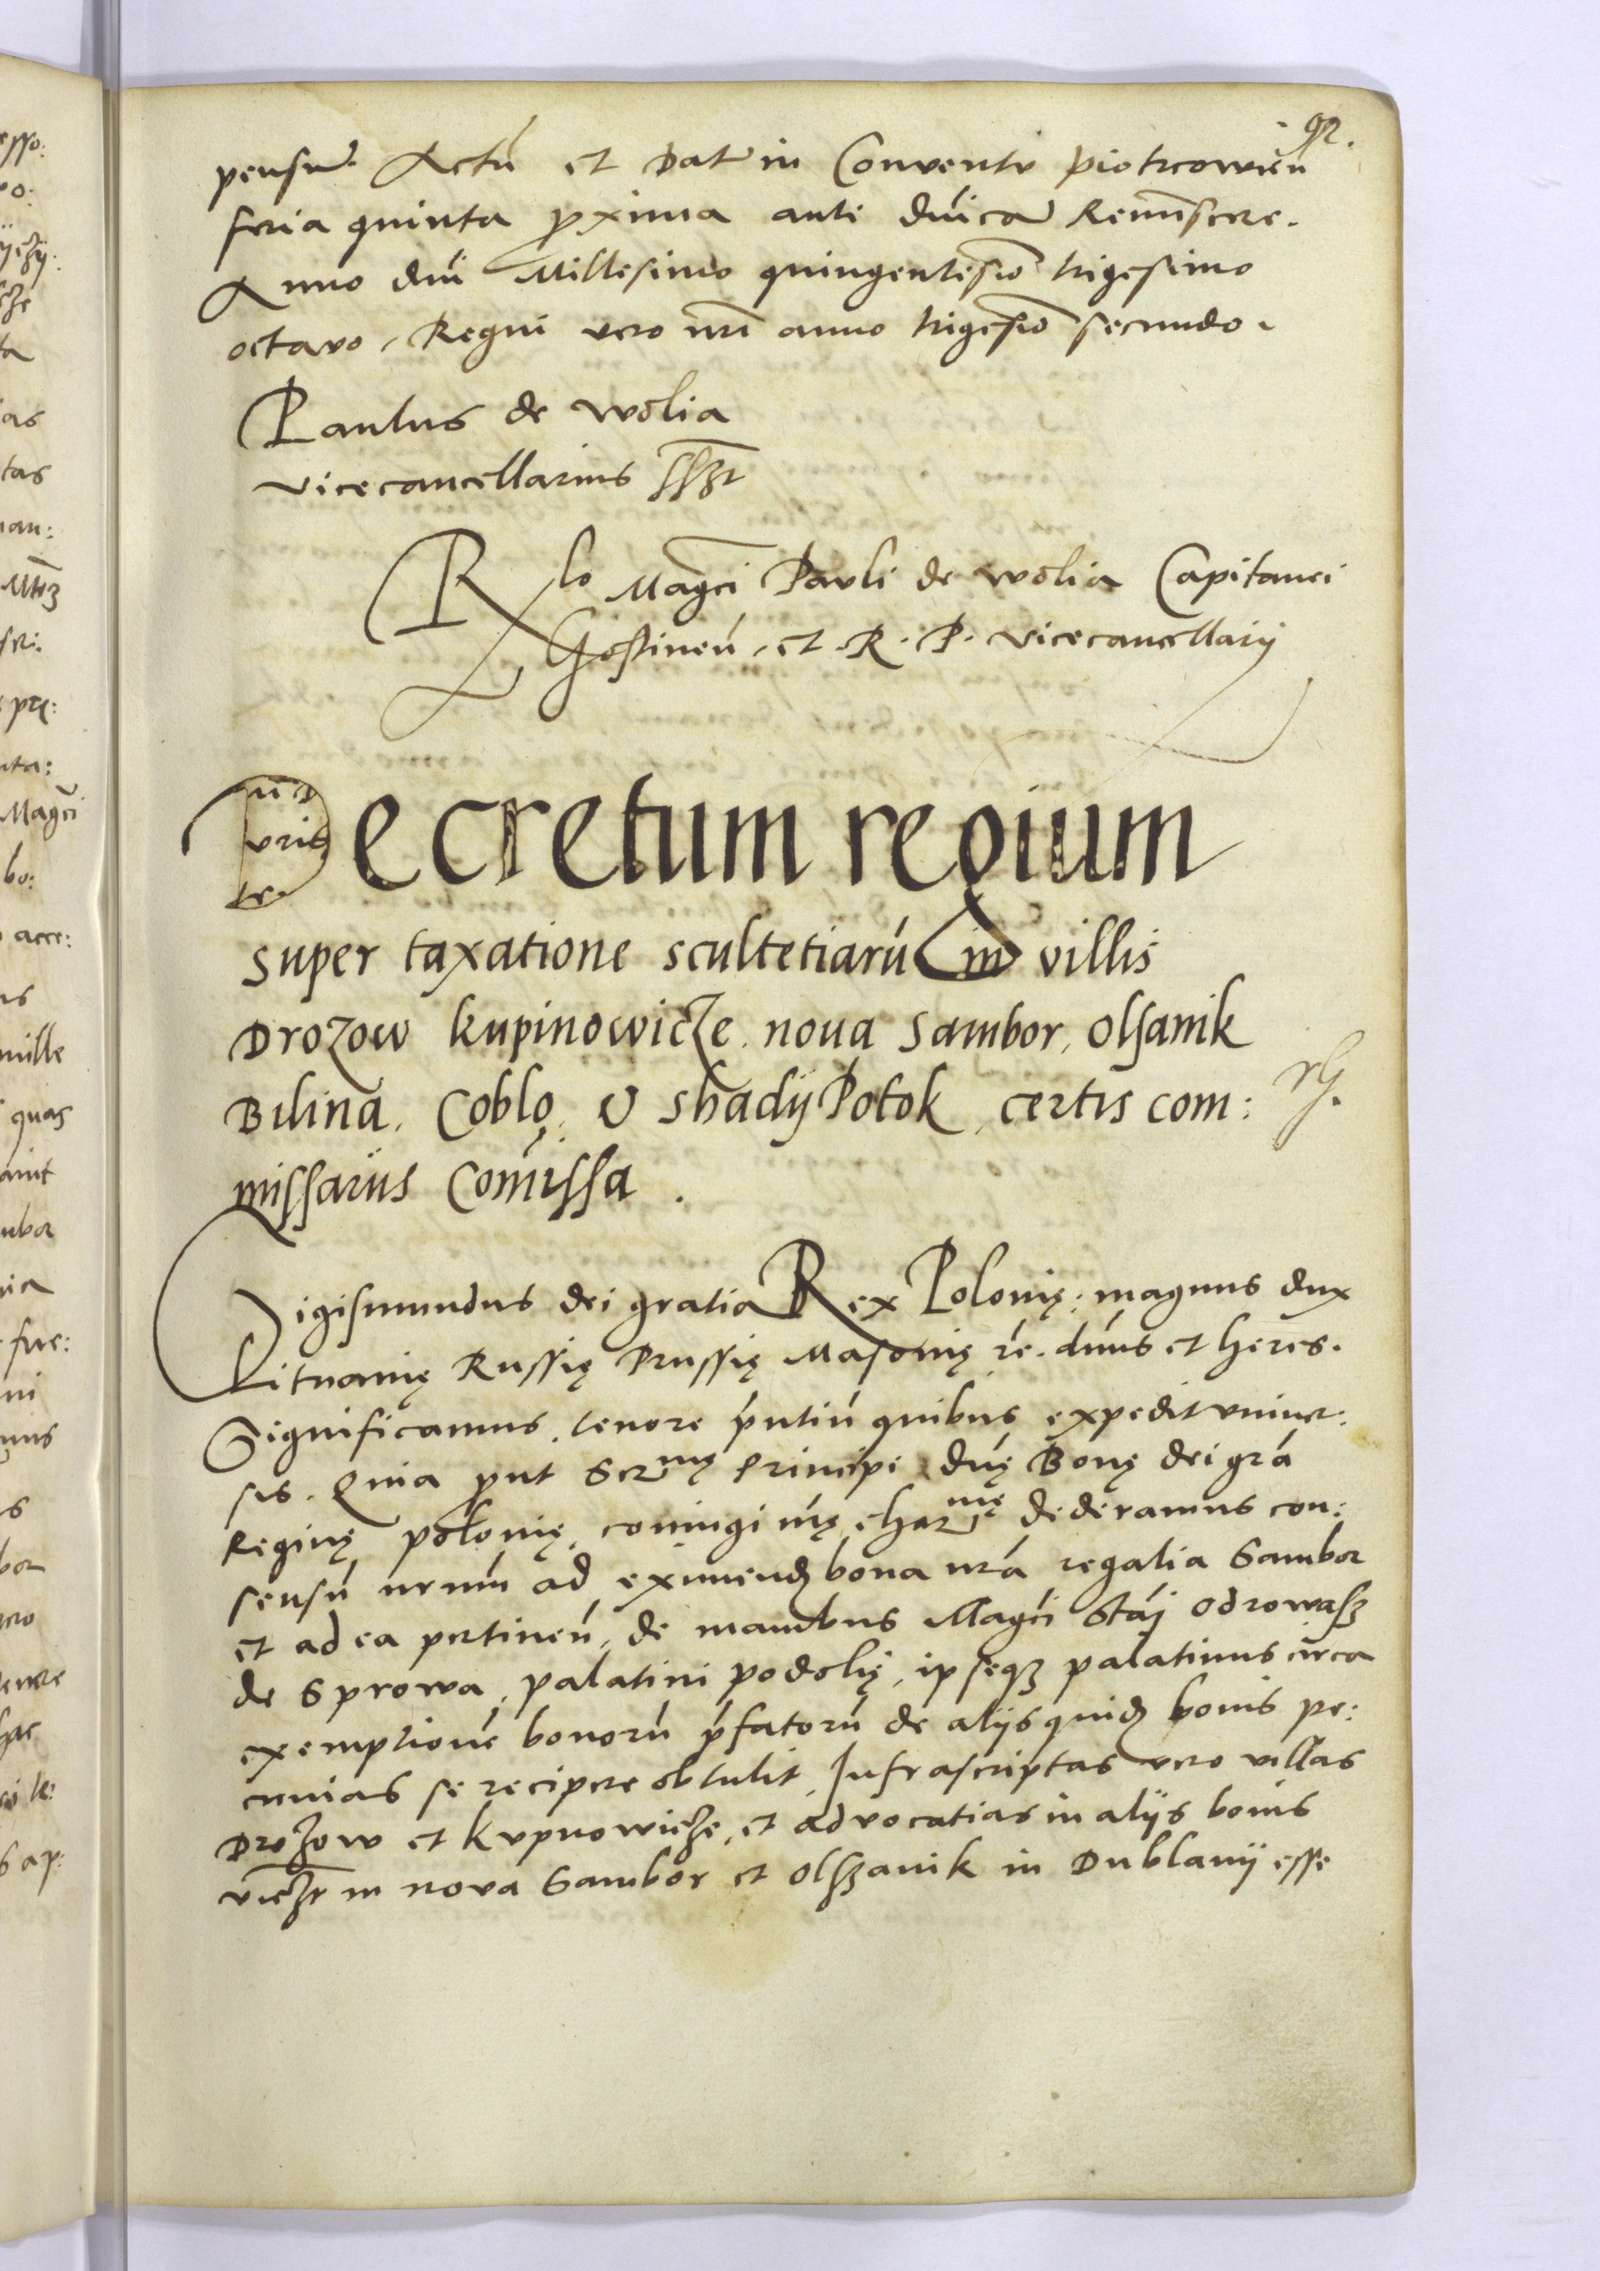 92.
pensu. Actú et Dat in Conventv piotrcowien
feria quinta pxima ante dnicā Reminiscere.
Anno dni Millesimo quingentesio trigesimo
octavo, Regni vero nri anno trigesio secundo.
Paulus de wolia
vicecancellarius sszt
Rlo Magci Pavli de wolia Capitanei
Gostineń, et R. P. vicecancellarij
Decretum regium
super taxatione scultetiarú in villis
Drozow kupinowicze. noua Sambor, Olsanik
Bilina, Coblo, V shadij Potok, certis com:
missariis Comissa.
Sigismundus dei gratia Rex Polonię, magnus dux
Lituanię Russię Prussię Masouię ré. dnus et heres.
Significamus, tenore pntiú quibus expedit vniuer:
sis. Quia put Sermę Principi dnę Bonę dei grá
Reginę polonię, coniugi nrę charmę dederamus con:
sensú nrum ad eximend bona nrá regalia Sambor
et ad ea pertineń, de manibus Magci Stáj odrowasz
de Sprowa, palatini podolię, ipseqz palatinus circa
exemptioné bonorú pfatorú de alijs quid bonis pe:
cunias se recipere obtulit, Infrascriptas vero villas
Drozow et kvpnowicze, et advocatias in alijs bonis
vıczt in nova Sambor et olszanik in Dublanij esse